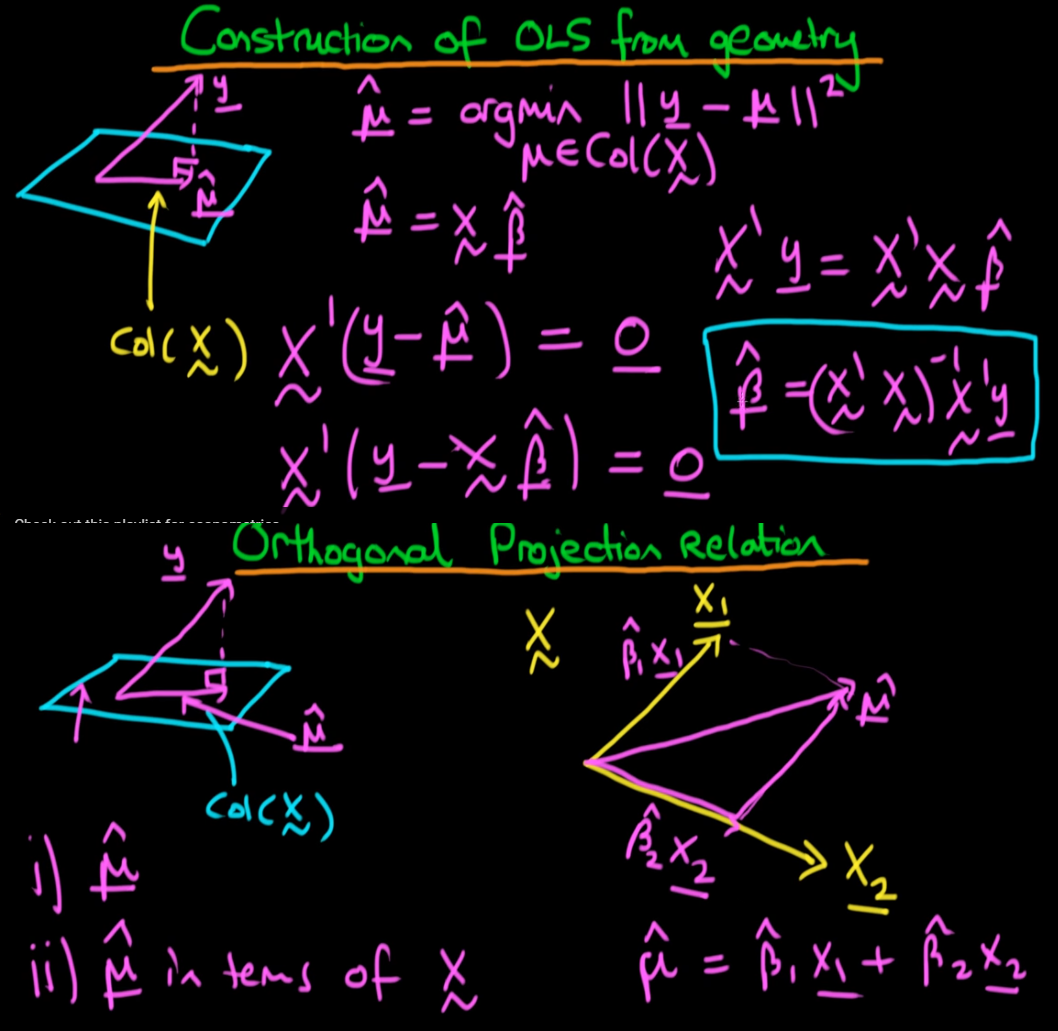 Construction of OLS from geometry
y
μ̂ = argmin ||y - μ||²
μ∈Col(X)
μ̂
μ̂ = X β̂
X'y = X'X β̂
Col(X)
X'(y - μ̂) = 0
β̂ = (X'X)⁻¹X'y
X'(y - X β̂) = 0
Check out this playlist for econometrics
Orthogonal Projection Relation
y
X
X₁
β̂₁X₁
μ̂
μ̂
Col(X)
β̂₂X₂
X₂
i) μ̂
ii) μ̂ in tems of X
μ̂ = β̂₁X₁ + β̂₂X₂